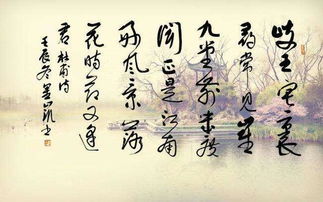 岐王宅裏
尋常見崔
九堂前幾度
聞正是江南
好風景落
花時節又逢
君 杜甫诗
壬辰冬